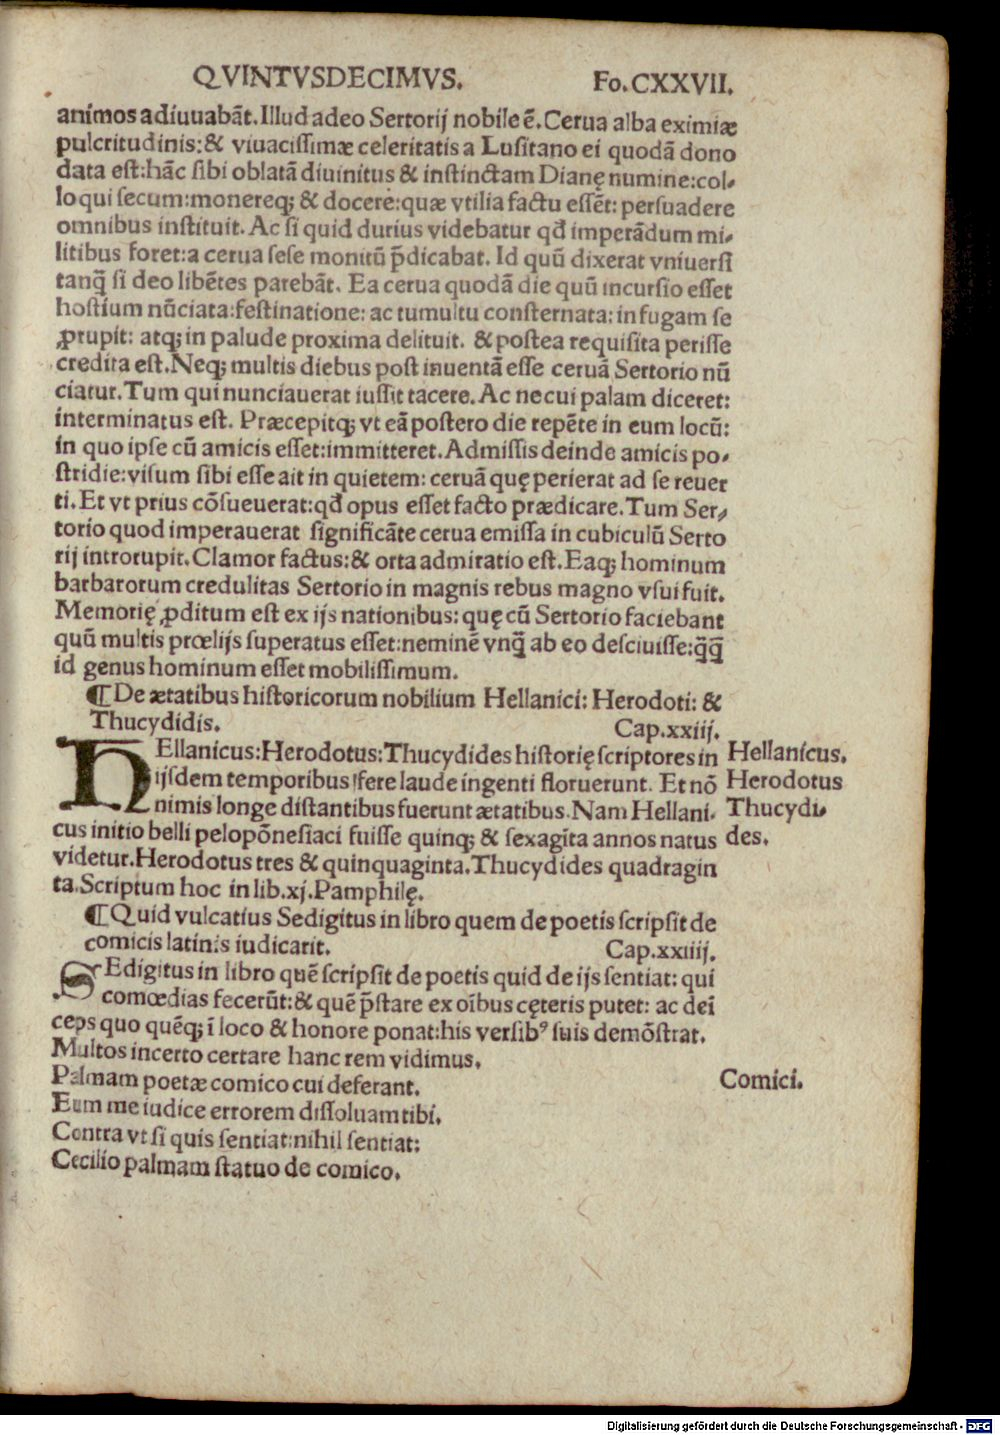 QVINTVSDECIMVS. Fo.CXXVII.
animos adiuuabãt. Illud adeo Sertorij nobile ẽ. Cerua alba eximiæ
pulcritudinis: & viuacissimæ celeritatis a Lusitano ei quodã dono
data est: hãc sibi oblatã diuinitus & instinctam Dianę numine: col-
loqui secum: monereq; & docere: quæ vtilia factu essẽt: persuadere
omnibus instituit. Ac si quid durius videbatur qđ imperãdum mi-
litibus foret: a cerua sese monitũ p̃dicabat. Id quũ dixerat vniuersi
tanq̃ si deo libẽtes parebãt. Ea cerua quodã die quũ incursio esset
hostium nũciata: festinatione: ac tumultu consternata: in fugam se
ꝓrupit: atq; in palude proxima delituit. & postea requisita perisse
credita est. Neq; multis diebus post inuentã esse ceruã Sertorio nũ
ciatur. Tum qui nunciauerat iussit tacere. Ac ne cui palam diceret:
interminatus est. Præcepitq; vt eã postero die repẽte in eum locũ:
in quo ipse cũ amicis esset: immitteret. Admissis deinde amicis po-
stridie: visum sibi esse ait in quietem: ceruã quę perierat ad se reuer
ti. Et vt prius cõsueuerat: qđ opus esset facto prædicare. Tum Ser-
torio quod imperauerat significãte cerua emissa in cubiculũ Serto
rij introrupit. Clamor factus: & orta admiratio est. Eaq; hominum
barbarorum credulitas Sertorio in magnis rebus magno vsui fuit.
Memorię ꝓditum est ex ijs nationibus: quę cũ Sertorio faciebant
quũ multis prœlijs superatus esset: neminẽ vnq̃ ab eo desciuisse: q̃q̃
id genus hominum esset mobilissimum.
¶ De ætatibus historicorum nobilium Hellanici: Herodoti: &
Thucydidis. Cap.xxiij.
HEllanicus: Herodotus: Thucydides historię scriptores in
ijsdem temporibus fere laude ingenti floruerunt. Et nõ
nimis longe distantibus fuerunt ætatibus. Nam Hellani-
cus initio belli pelopõnesiaci fuisse quinq; & sexagĩta annos natus
videtur. Herodotus tres & quinquaginta. Thucydides quadragin
ta. Scriptum hoc in lib.xj. Pamphilę.
Hellanicus.
Herodotus
Thucydi-
des.
¶ Quid vulcatius Sedigitus in libro quem de poetis scripsit de
comicis latinis iudicarit. Cap.xxiiij.
SEdigitus in libro quẽ scripsit de poetis quid de ijs sentiat: qui
comœdias fecerũt: & quẽ p̃stare ex oĩbus cęteris putet: ac deĩ
ceps quo quẽq; ĩ loco & honore ponat: his versibꝰ suis demõstrat.
Multos incerto certare hanc rem vidimus.
Palmam poetæ comico cui deferant.
Eum me iudice errorem dissoluam tibi.
Contra vt si quis sentiat: nihil sentiat:
Cecilio palmam statuo de comico.
Comici.
Digitalisierung gefördert durch die Deutsche Forschungsgemeinschaft - DFG